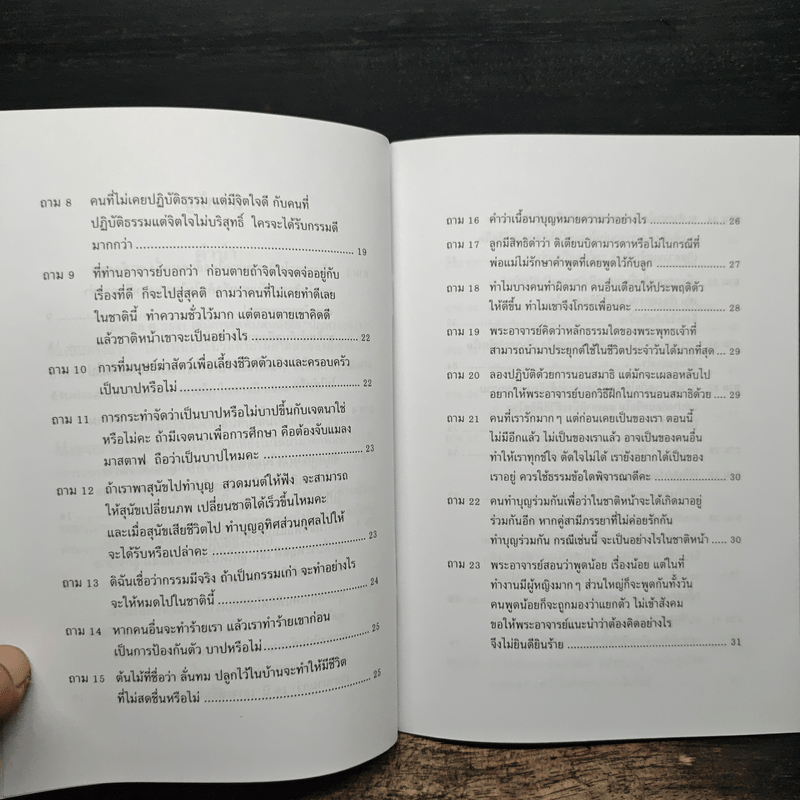 ถาม 8 คนที่ไม่เคยปฏิบัติธรรม แต่มีจิตใจดี กับคนที่
ปฏิบัติธรรมแต่จิตใจไม่บริสุทธิ์ ใครจะได้รับกรรมดี
มากกว่า ........................................................ 19
ถาม 9 ที่ท่านอาจารย์บอกว่า ก่อนตายถ้าจิตใจจดจ่ออยู่กับ
เรื่องที่ดี ก็จะไปสู่สุคติ ถามว่าคนที่ไม่เคยทำดีเลย
ในชาตินี้ ทำความชั่วไว้มาก แต่ตอนตายเขาคิดดี
แล้วชาติหน้าเขาจะเป็นอย่างไร ............................ 22
ถาม 10 การที่มนุษย์ฆ่าสัตว์เพื่อเลี้ยงชีวิตตัวเองและครอบครัว
เป็นบาปหรือไม่ ............................................... 22
ถาม 11 การกระทำจัดว่าเป็นบาปหรือไม่บาปขึ้นกับเจตนาใช่
หรือไม่คะ ถ้ามีเจตนาเพื่อการศึกษา คือต้องจับแมลง
มาสตาฟ ถือว่าเป็นบาปไหมคะ ............................ 23
ถาม 12 ถ้าเราพาสุนัขไปทำบุญ สวดมนต์ให้ฟัง จะสามารถ
ให้สุนัขเปลี่ยนภพ เปลี่ยนชาติได้เร็วขึ้นไหมคะ
และเมื่อสุนัขเสียชีวิตไป ทำบุญอุทิศส่วนกุศลไปให้
จะได้รับหรือเปล่าคะ ......................................... 23
ถาม 13 ดิฉันเชื่อว่ากรรมมีจริง ถ้าเป็นกรรมเก่า จะทำอย่างไร
จะให้หมดไปในชาตินี้ ........................................ 24
ถาม 14 หากคนอื่นจะทำร้ายเรา แล้วเราทำร้ายเขาก่อน
เป็นการป้องกันตัว บาปหรือไม่ ............................ 25
ถาม 15 ต้นไม้ที่ชื่อว่า ลั่นทม ปลูกไว้ในบ้านจะทำให้มีชีวิต
ที่ไม่สดชื่นหรือไม่ ............................................ 25
ถาม 16 คำว่าเนื้อนาบุญหมายความว่าอย่างไร ........................ 26
ถาม 17 ลูกมีสิทธิด่าว่า ติเตียนบิดามารดาหรือไม่ในกรณีที่
พ่อแม่ไม่รักษาคำพูดที่เคยพูดไว้กับลูก ..................... 27
ถาม 18 ทำไมบางคนทำผิดมาก คนอื่นเตือนให้ประพฤติตัว
ให้ดีขึ้น ทำไมเขาจึงโกรธเพื่อนคะ ........................... 28
ถาม 19 พระอาจารย์คิดว่าหลักธรรมใดของพระพุทธเจ้าที่
สามารถนำมาประยุกต์ใช้ในชีวิตประจำวันได้มากที่สุด .. 29
ถาม 20 ลองปฏิบัติด้วยการนอนสมาธิ แต่มักจะเผลอหลับไป
อยากให้พระอาจารย์บอกวิธีฝึกในการนอนสมาธิด้วย ... 29
ถาม 21 คนที่เรารักมากๆ แต่ก่อนเคยเป็นของเรา ตอนนี้
ไม่มีอีกแล้ว ไม่เป็นของเราแล้ว อาจเป็นของคนอื่น
ทำให้เราทุกข์ใจ ตัดใจไม่ได้ เรายังอยากได้เป็นของ
เราอยู่ ควรใช้ธรรมข้อใดพิจารณาดีคะ ..................... 30
ถาม 22 คนทำบุญร่วมกันเพื่อว่าในชาติหน้าจะได้เกิดมาอยู่
ร่วมกันอีก หากคู่สามีภรรยาที่ไม่ค่อยรักกัน
ทำบุญร่วมกัน กรณีเช่นนี้ จะเป็นอย่างไรในชาติหน้า ... 30
ถาม 23 พระอาจารย์สอนว่าพูดน้อย เรื่องน้อย แต่ในที่
ทำงานมีผู้หญิงมากๆ ส่วนใหญ่ก็จะพูดกันทั้งวัน
คนพูดน้อยก็จะถูกมองว่าแยกตัว ไม่เข้าสังคม
ขอให้พระอาจารย์แนะนำว่าต้องคิดอย่างไร
จึงไม่ยินดียินร้าย ................................................ 31